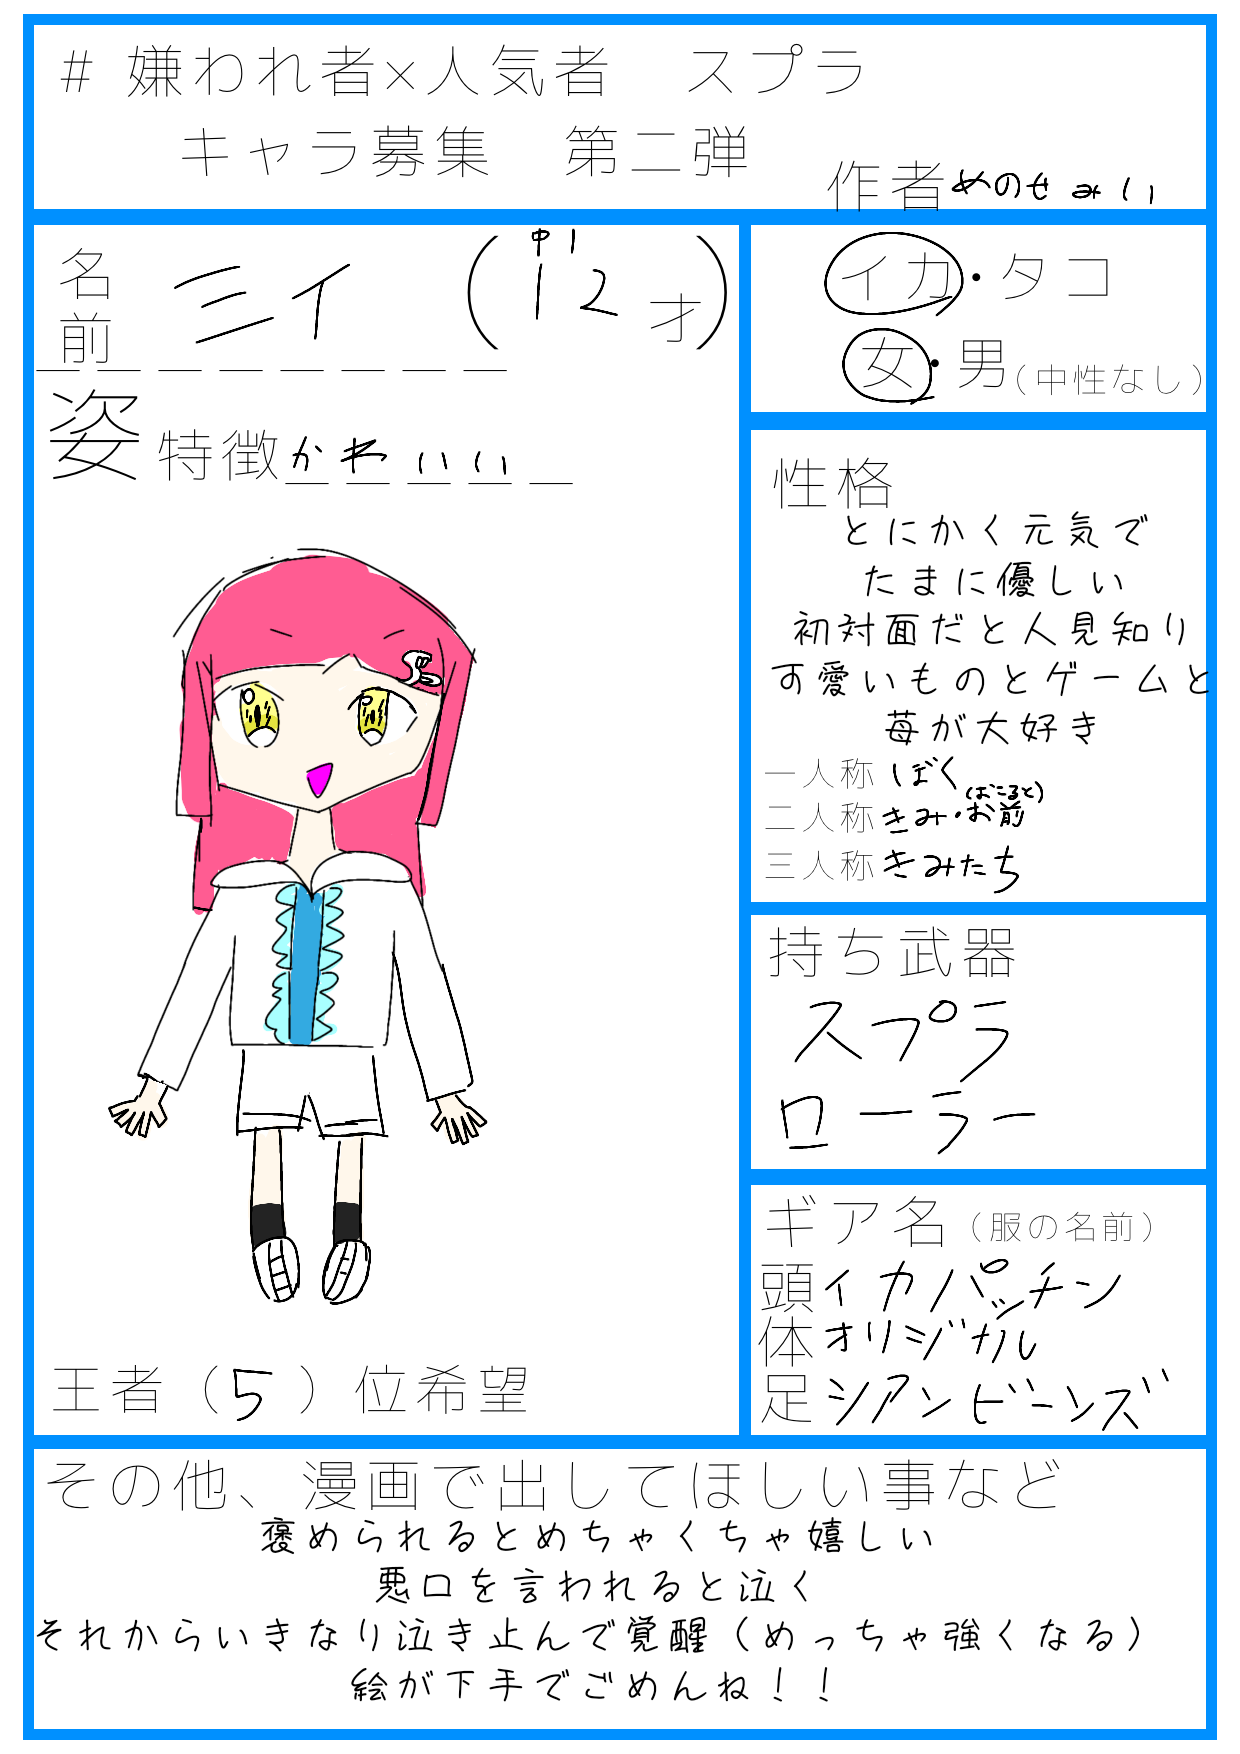 # 嫌われ者×人気者　スプラ
キャラ募集　第二弾
作者めのせみい
名前 ミイ (中1 12才)
イカ・タコ
女・男(中性なし)
姿 特徴かわいい
性格
とにかく元気で
たまに優しい
初対面だと人見知り
可愛いものとゲームと
苺が大好き
一人称 ぼく
二人称 きみ・お前(おこると)
三人称 きみたち
持ち武器
スプラ
ローラー
ギア名(服の名前)
頭イカパッチン
体オリジナル
足シアンビーンズ
王者(5)位希望
その他、漫画で出してほしい事など
褒められるとめちゃくちゃ嬉しい
悪口を言われると泣く
それからいきなり泣き止んで覚醒(めっちゃ強くなる)
絵が下手でごめんね！！